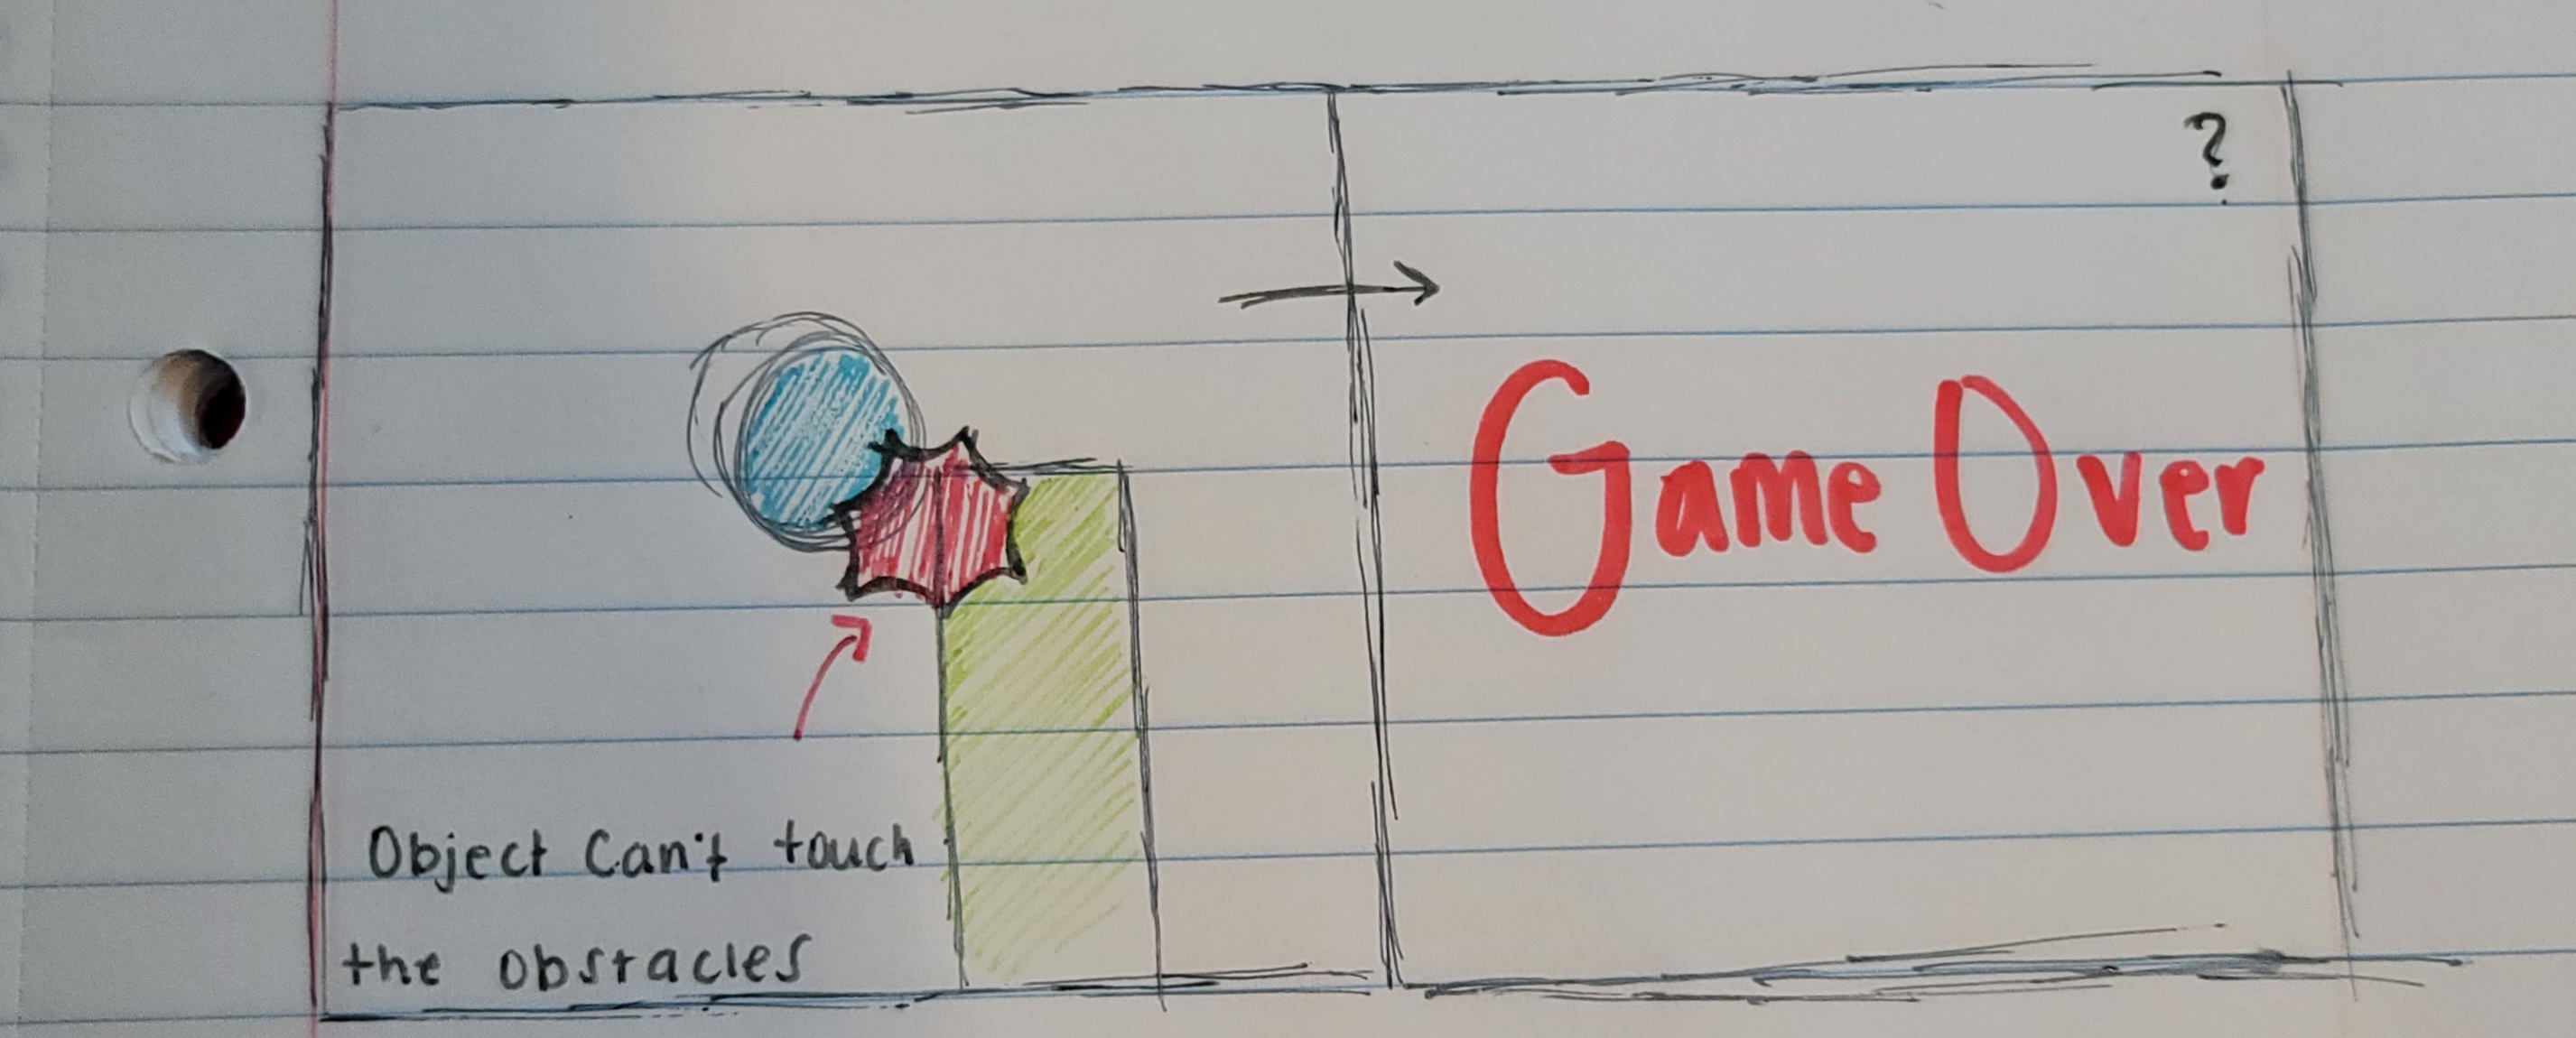 Object Can't touch
the obstacles
?
Game Over